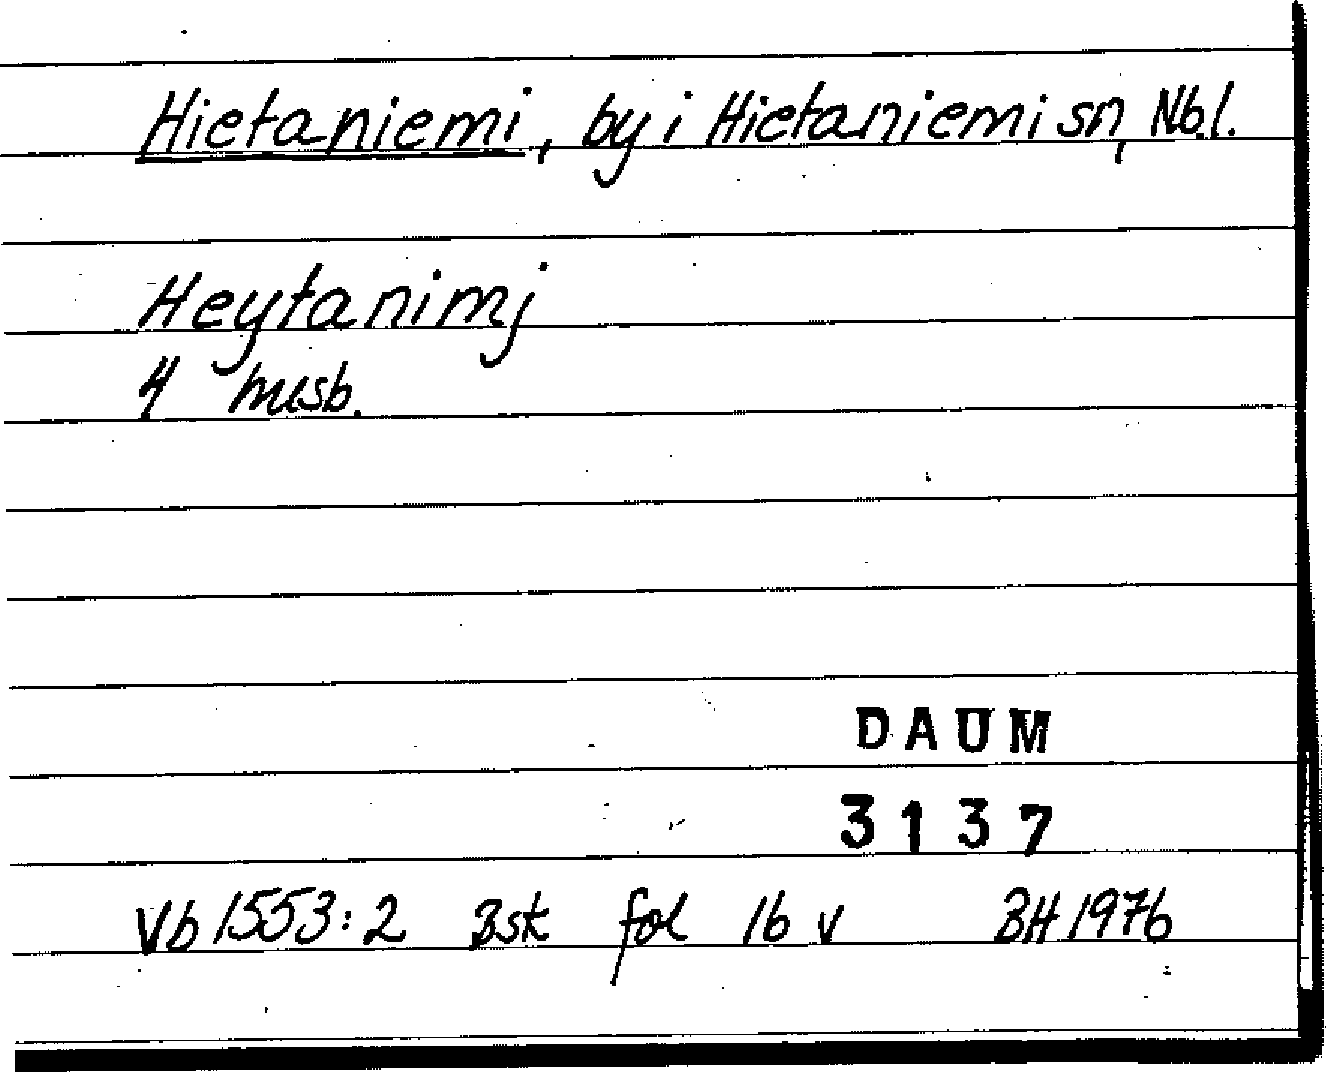 Hietaniemi, by i Hietaniemi sn, Nb.l.
Heytanimj
4 husb.
DAUM
3137
Vb 1553:2 Bsk fol 16 v BH 1976